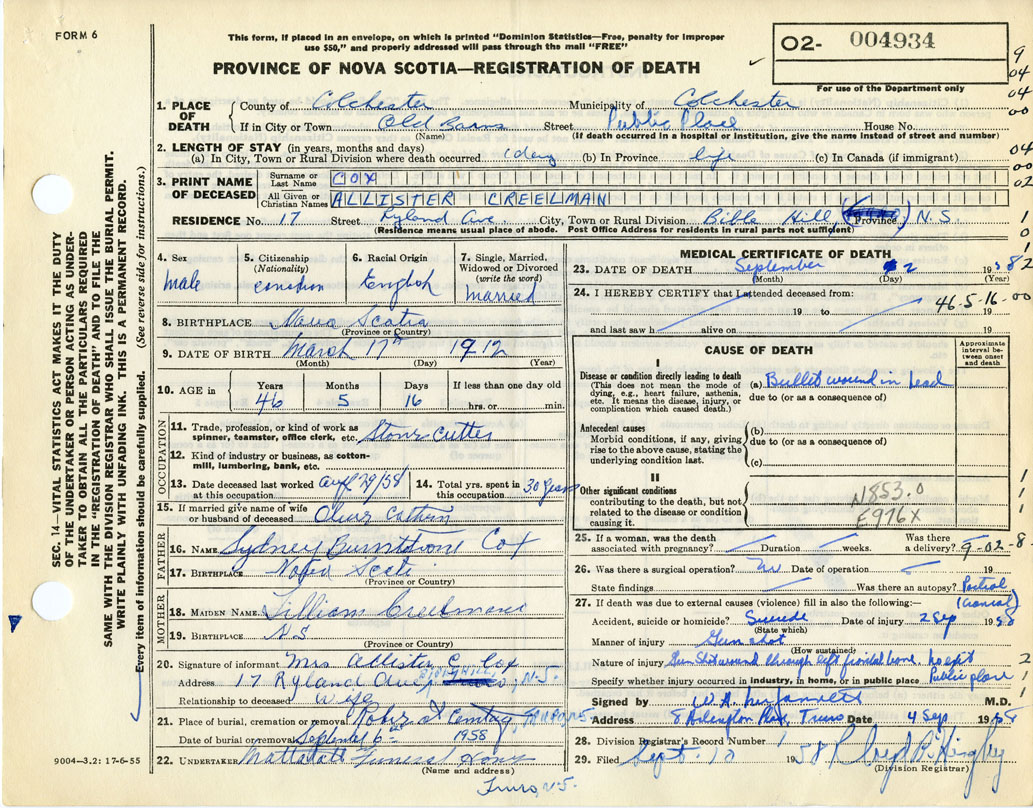 FORM 6
This form, if placed in an envelope, on which is printed "Dominion Statistics—Free, penalty for improper
use $50," and properly addressed will pass through the mail "FREE"
02- 004934
For use of the Department only
PROVINCE OF NOVA SCOTIA—REGISTRATION OF DEATH
1. PLACE OF DEATH { County of Colchester Municipality of Colchester
If in City or Town Old Barns Street Public Place House No.
(Name) (If death occurred in a hospital or institution, give the name instead of street and number)
2. LENGTH OF STAY (in years, months and days)
(a) In City, Town or Rural Division where death occurred 1 day (b) In Province life (c) In Canada (if immigrant)
3. PRINT NAME OF DECEASED
Surname or Last Name COX
All Given or Christian Names ALLISTER CREELMAN
RESIDENCE No. 17 Street Ryland Ave. City, Town or Rural Division Bible Hill (Province) N.S.
(Residence means usual place of abode. Post Office Address for residents in rural parts not sufficient)
4. Sex male
5. Citizenship (Nationality)
6. Racial Origin English
7. Single, Married, Widowed or Divorced (write the word) married
8. BIRTHPLACE Nova Scotia
(Province or Country)
9. DATE OF BIRTH March 17th 1912
(Month) (Day) (Year)
10. AGE in Years 46 Months 5 Days 16 If less than one day old hrs. or min.
OCCUPATION
11. Trade, profession, or kind of work as spinner, teamster, office clerk, etc. Stone Cutter
12. Kind of industry or business, as cotton-mill, lumbering, bank, etc.
13. Date deceased last worked at this occupation 29/58
14. Total yrs. spent in this occupation 30 years
15. If married give name of wife or husband of deceased
FATHER
16. NAME Sydney Cox
17. BIRTHPLACE Nova Scotia
(Province or Country)
MOTHER
18. MAIDEN NAME Lilliam Creelman
19. BIRTHPLACE N.S
(Province or Country)
20. Signature of informant Mrs Allister C. Cox
Address 17 Ryland Ave, N.S.
Relationship to deceased wife
21. Place of burial, cremation or removal
Date of burial or removal September 6 1958
22. UNDERTAKER Mattatall Funeral Home
(Name and address)
Truro, N.S.
9004—3.2: 17-6-55
MEDICAL CERTIFICATE OF DEATH
23. DATE OF DEATH September 2 1958
(Month) (Day) (Year)
24. I HEREBY CERTIFY that I attended deceased from:
19 to 19
and last saw h alive on 19
46-5-16-00
CAUSE OF DEATH
Approximate interval between onset and death
I
Disease or condition directly leading to death
(This does not mean the mode of dying, e.g., heart failure, asthenia, etc. It means the disease, injury, or complication which caused death.)
(a) Bullet wound in head
due to (or as a consequence of)
Antecedent causes
Morbid conditions, if any, giving rise to the above cause, stating the underlying condition last.
(b)
due to (or as a consequence of)
(c)
II
Other significant conditions
contributing to the death, but not related to the disease or condition causing it.
N853.0
E976X
25. If a woman, was the death associated with pregnancy? Duration weeks. Was there a delivery? 9-02-8
26. Was there a surgical operation? No Date of operation
State findings Was there an autopsy? Partial
27. If death was due to external causes (violence) fill in also the following:—
Accident, suicide or homicide? Suicide Date of injury 2 Sep 1958
(State which)
Manner of injury Gun shot
(How sustained)
Nature of injury Gun Shot wound through left frontal bone.
Specify whether injury occurred in industry, in home, or in public place Public place
Signed by M.D.
Address 8 Arlington Place, Truro Date 4 Sep 1958
28. Division Registrar's Record Number 1
29. Filed Sept. 10 1958
(Division Registrar)
SEC. 14—VITAL STATISTICS ACT MAKES IT THE DUTY
OF THE UNDERTAKER OR PERSON ACTING AS UNDER-
TAKER TO OBTAIN ALL THE PARTICULARS REQUIRED
IN THE "REGISTRATION OF DEATH" AND TO FILE THE
SAME WITH THE DIVISION REGISTRAR WHO SHALL ISSUE THE BURIAL PERMIT.
WRITE PLAINLY WITH UNFADING INK. THIS IS A PERMANENT RECORD.
Every item of information should be carefully supplied. (See reverse side for instructions.)
9
04
04
00
04
00
02
1
0
1
2
1
1
1
2
1